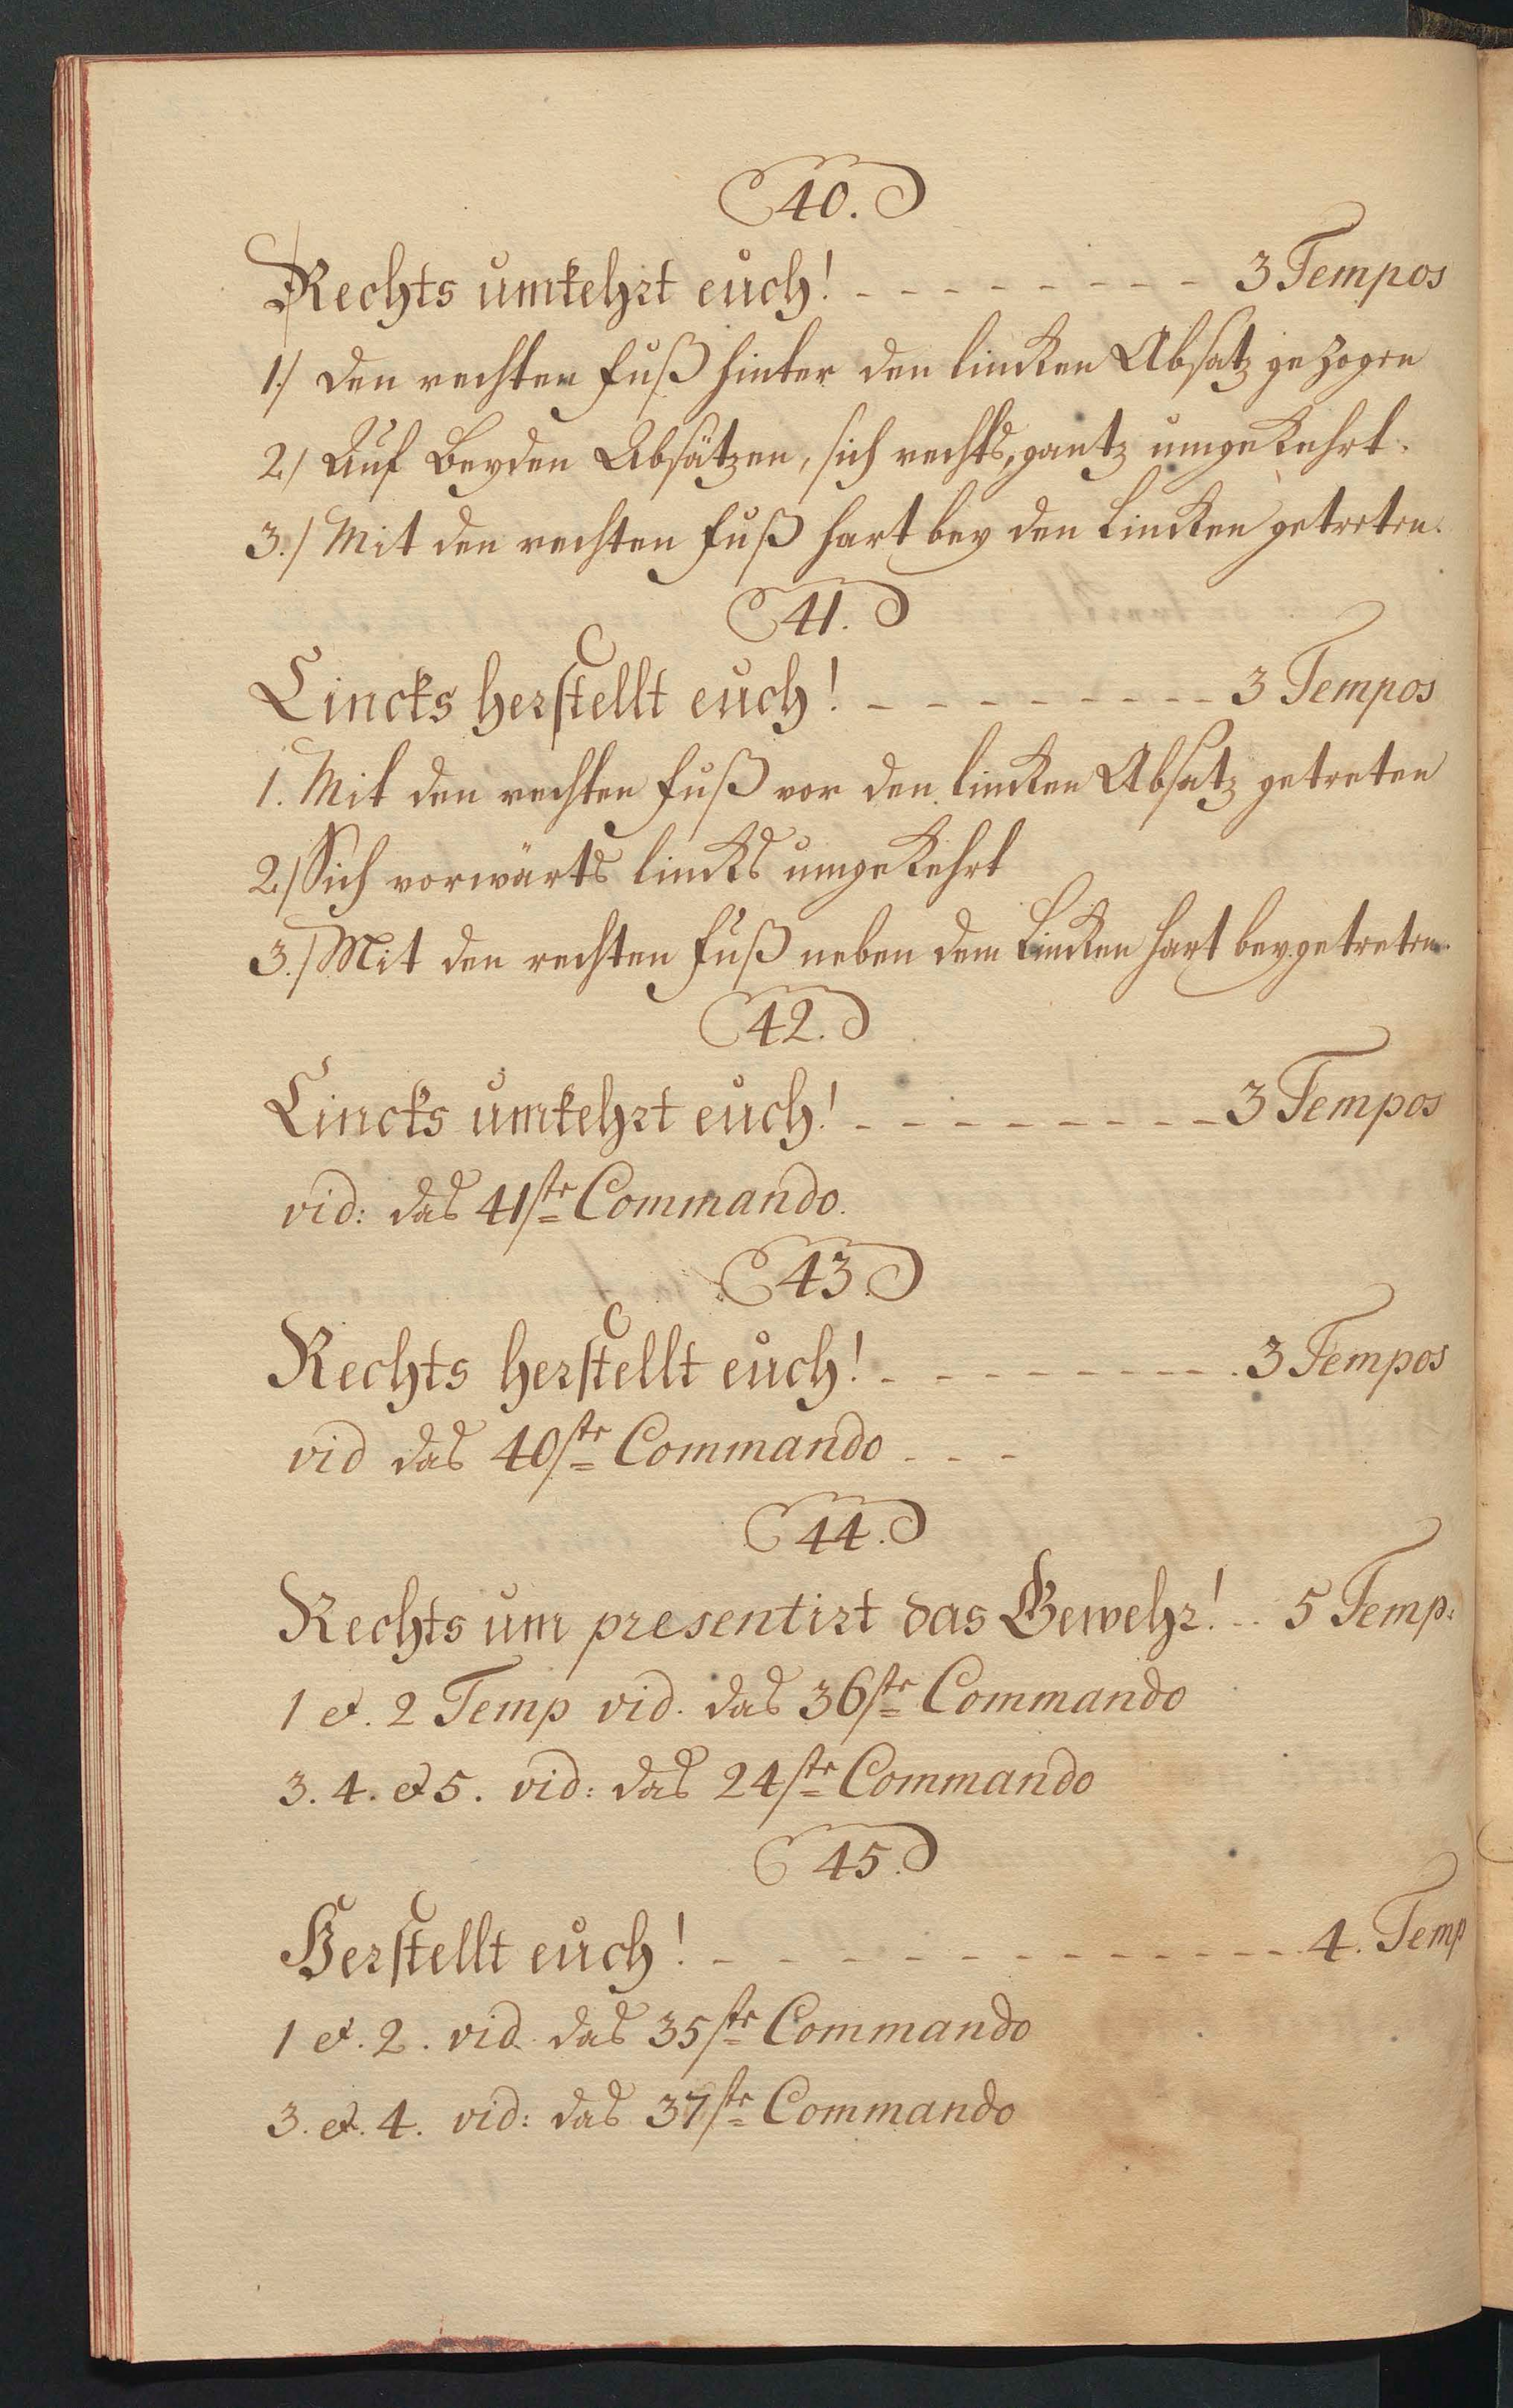 40.
Rechts umkehrt euch! - - - - - - - - - 3 Tempos
1./ den rechten Fuß hinter den lincken Absatz gezogen
2./ Auf beyden Absätzen, sich rechts, gantz umgekehrt.
3./ Mit den rechten Fuß hart bey den Lincken getreten.
41.
Lincks herstellt euch! - - - - - - - - - 3 Tempos
1. Mit den rechten Fuß vor den lincken Absatz getreten
2./ Sich vorwärts lincks umgekehrt
3./ Mit den rechten Fuß neben dem Lincken hart beygetreten.
42.
Lincks umkehrt euch! - - - - - - - - - 3 Tempos
vid: das 41ste Commando.
43.
Rechts herstellt euch! - - - - - - - - - 3 Tempos
vid das 40ste Commando - - -
44.
Rechts um presentirt das Gewehr! - - 5 Temp:
1 et. 2 Temp vid. das 36ste Commando
3. 4. et 5. vid: das 24ste Commando
45.
Herstellt euch! - - - - - - - - - - - - - - 4. Temp
1 et. 2. vid. das 35ste Commando
3. et. 4. vid: das 37ste Commando